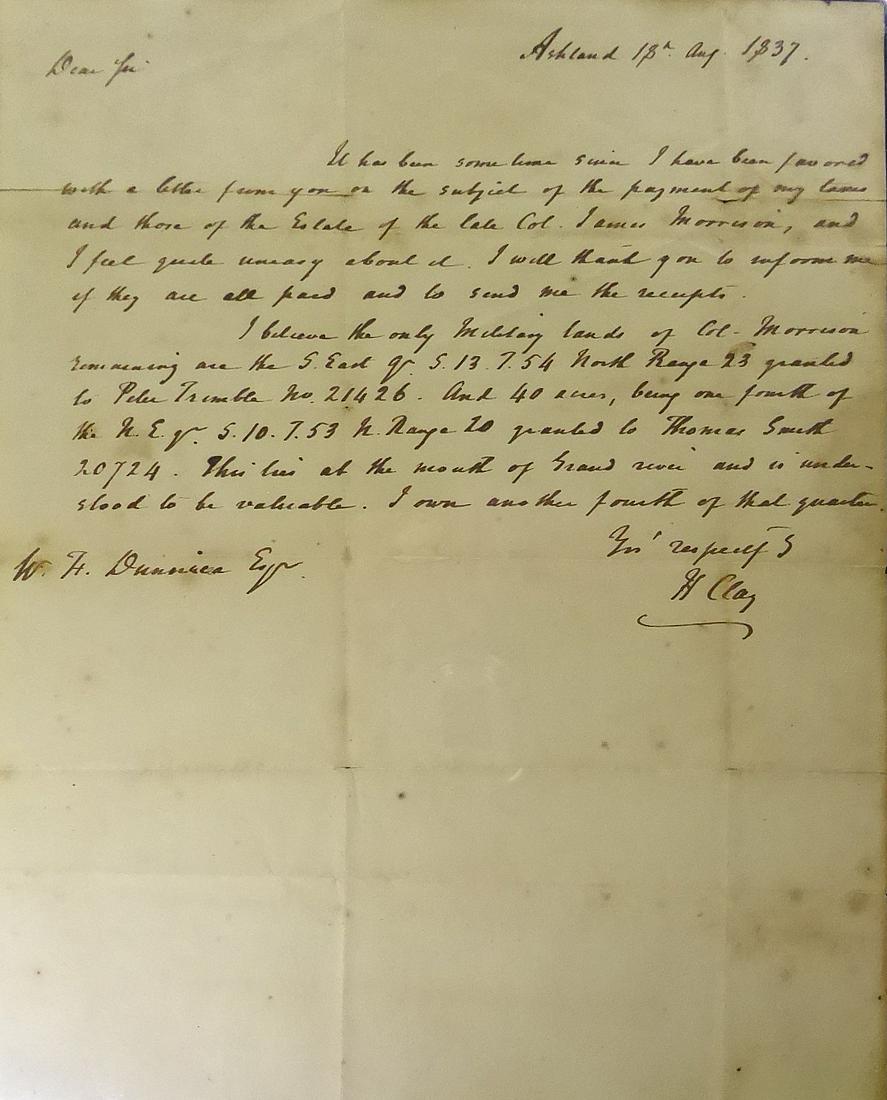 Ashland 18h Aug. 1837.
Dear Sir
It has been some time since I have been favored
with a letter from you on the subject of the payment of my taxes
and those of the Estate of the late Col. James Morrison, and
I feel quite uneasy about it. I will thank you to inform me
if they are all paid and to send me the receipts.
I believe the only Military lands of Col. Morrison
remaining are the S. East qr. S. 13. T. 54 North Range 23 granted
to Peter Trimble No. 21426. And 40 acres, being one fourth of
the N. E. qr. S. 10. T. 53 N. Range 20 granted to Thomas Smith
20724. This lies at the mouth of Grand river and is under-
stood to be valuable. I own another fourth of that quarter.
Yrs' respectf y
H Clay
W. F. Dunnica Esqr.